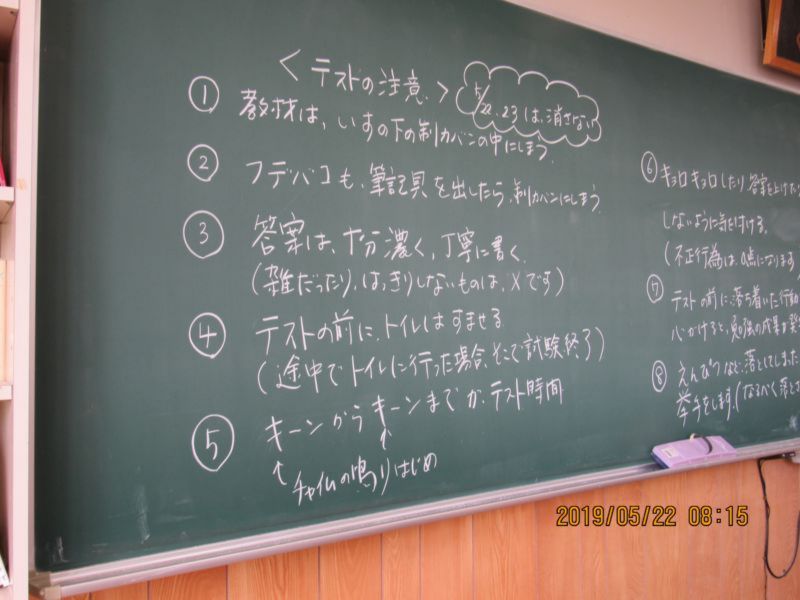 ＜テストの注意＞
5/22、23は、消さない
① 教材は、いすの下の制カバンの中にしまう。
② フデバコも、筆記具を出したら、制カバンにしまう
③ 答案は、十分濃く、丁寧に書く。
(雑だったり、はっきりしないものは、×です)
④ テストの前に、トイレはすませる
(途中でトイレに行った場合、そこで試験終了)
⑤ キーンからキーンまでが、テスト時間
↑ ↑
チャイムの鳴りはじめ
⑥ キョロキョロしたり、答案を上げたり
しないように気を付ける。
(不正行為は、0点になります
⑦ テストの前に、落ち着いた行動
心がけると、勉強の成果を発
⑧ えんぴつなど、落としてしまった
挙手をします。(なるべく落とさ
2019/05/22 08:15